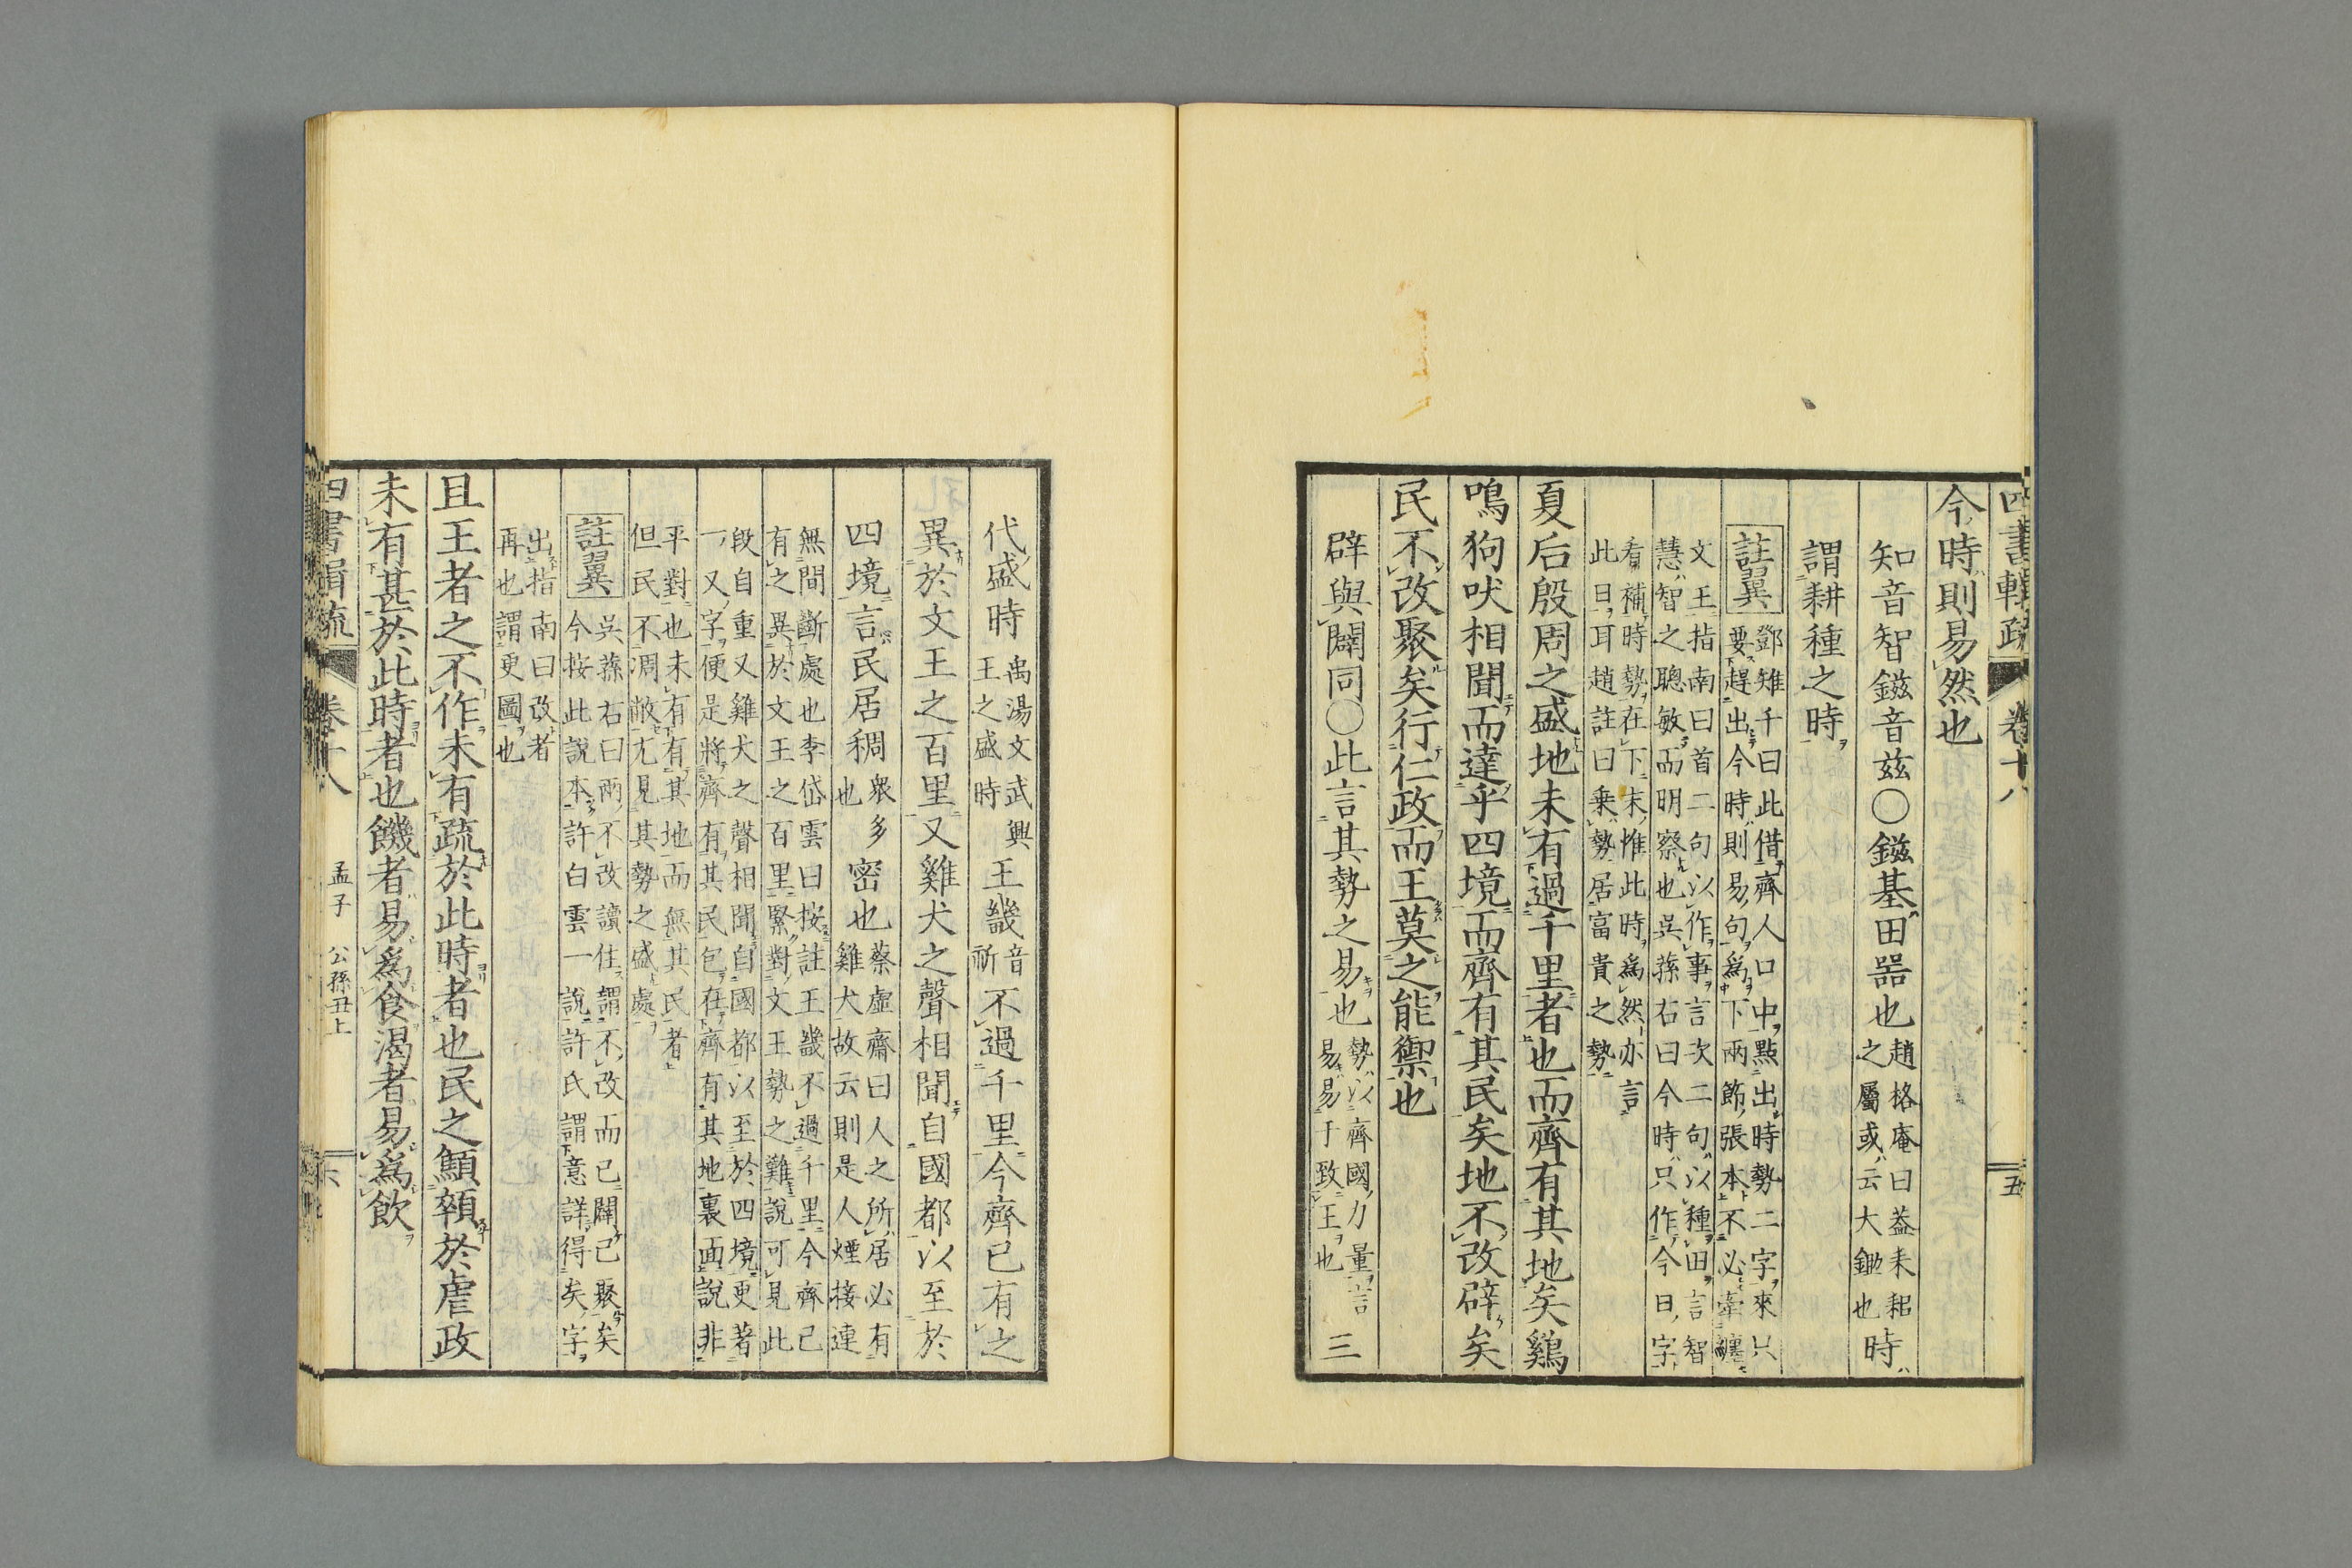 四書輯疏 卷十八 五
今時則易然也
知音智鎡音玆〇鎡基田器也趙格庵曰葢耒耜之屬或云大鋤也時
謂耕種之時
註翼 鄧雉千曰此借齊人口中點出時勢二字來只要趕出今時則易句爲下兩節張本不必牽纏
文王指南曰首二句以作事言次二句以種田言智慧智之聰敏而明察也吳蓀右曰今時只作今日字
看補時勢在下末惟此時爲然亦言此日耳趙註曰乗勢居富貴之勢
夏后殷周之盛地未有過千里者也而齊有其地矣鷄
鳴狗吠相聞而達乎四境而齊有其民矣地不改辟矣
民不改聚矣行仁政而王莫之能禦也
辟與闢同〇此言其勢之易也勢以齊國力量言易易于致王也三
代盛時禹湯文武興王之盛時王畿音祈不過千里今齊已有之
異於文王之百里又雞犬之聲相聞自國都以至於
四境言民居稠衆多也密也蔡虛齋曰人之所居必有雞犬故云則是人煙接連
無間斷處也李岱雲曰按註王畿不過千里今齊已有之異於文王之百里緊對文王勢之難說可見此
段自重又雞犬之聲相聞自國都以至於四境更著一又字便是將齊有其民包在齊有其地裏面說非
平對也未有有其地而無其民者但民不凋敝尤見其勢之盛處
註翼 吳蓀右曰兩不改讀住謂不改而已闢已聚矣今按此說本許白雲一說許氏謂意詳得矣字
出指南曰改者再也謂更圖也
且王者之不作未有疏於此時者也民之顦顇於虐政
未有甚於此時者也饑者易爲食渴者易爲飲
四書輯疏 卷十八 孟子 公孫丑上 六